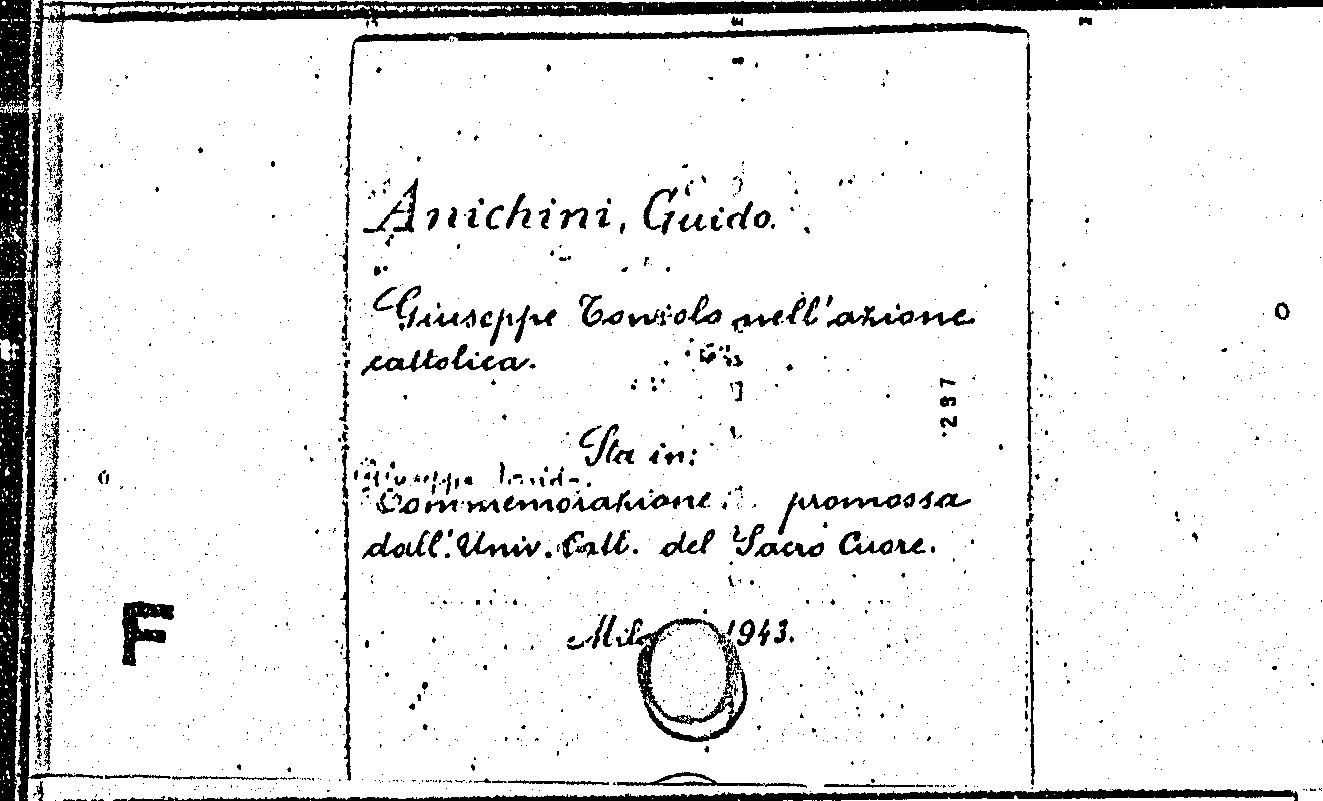 Anichini, Guido.
Giuseppe Toniolo nell'azione
cattolica.
297
Sta in:
Giuseppe
Commemorazione promossa
dall'Univ. Catt. del Sacro Cuore.
1943.
F